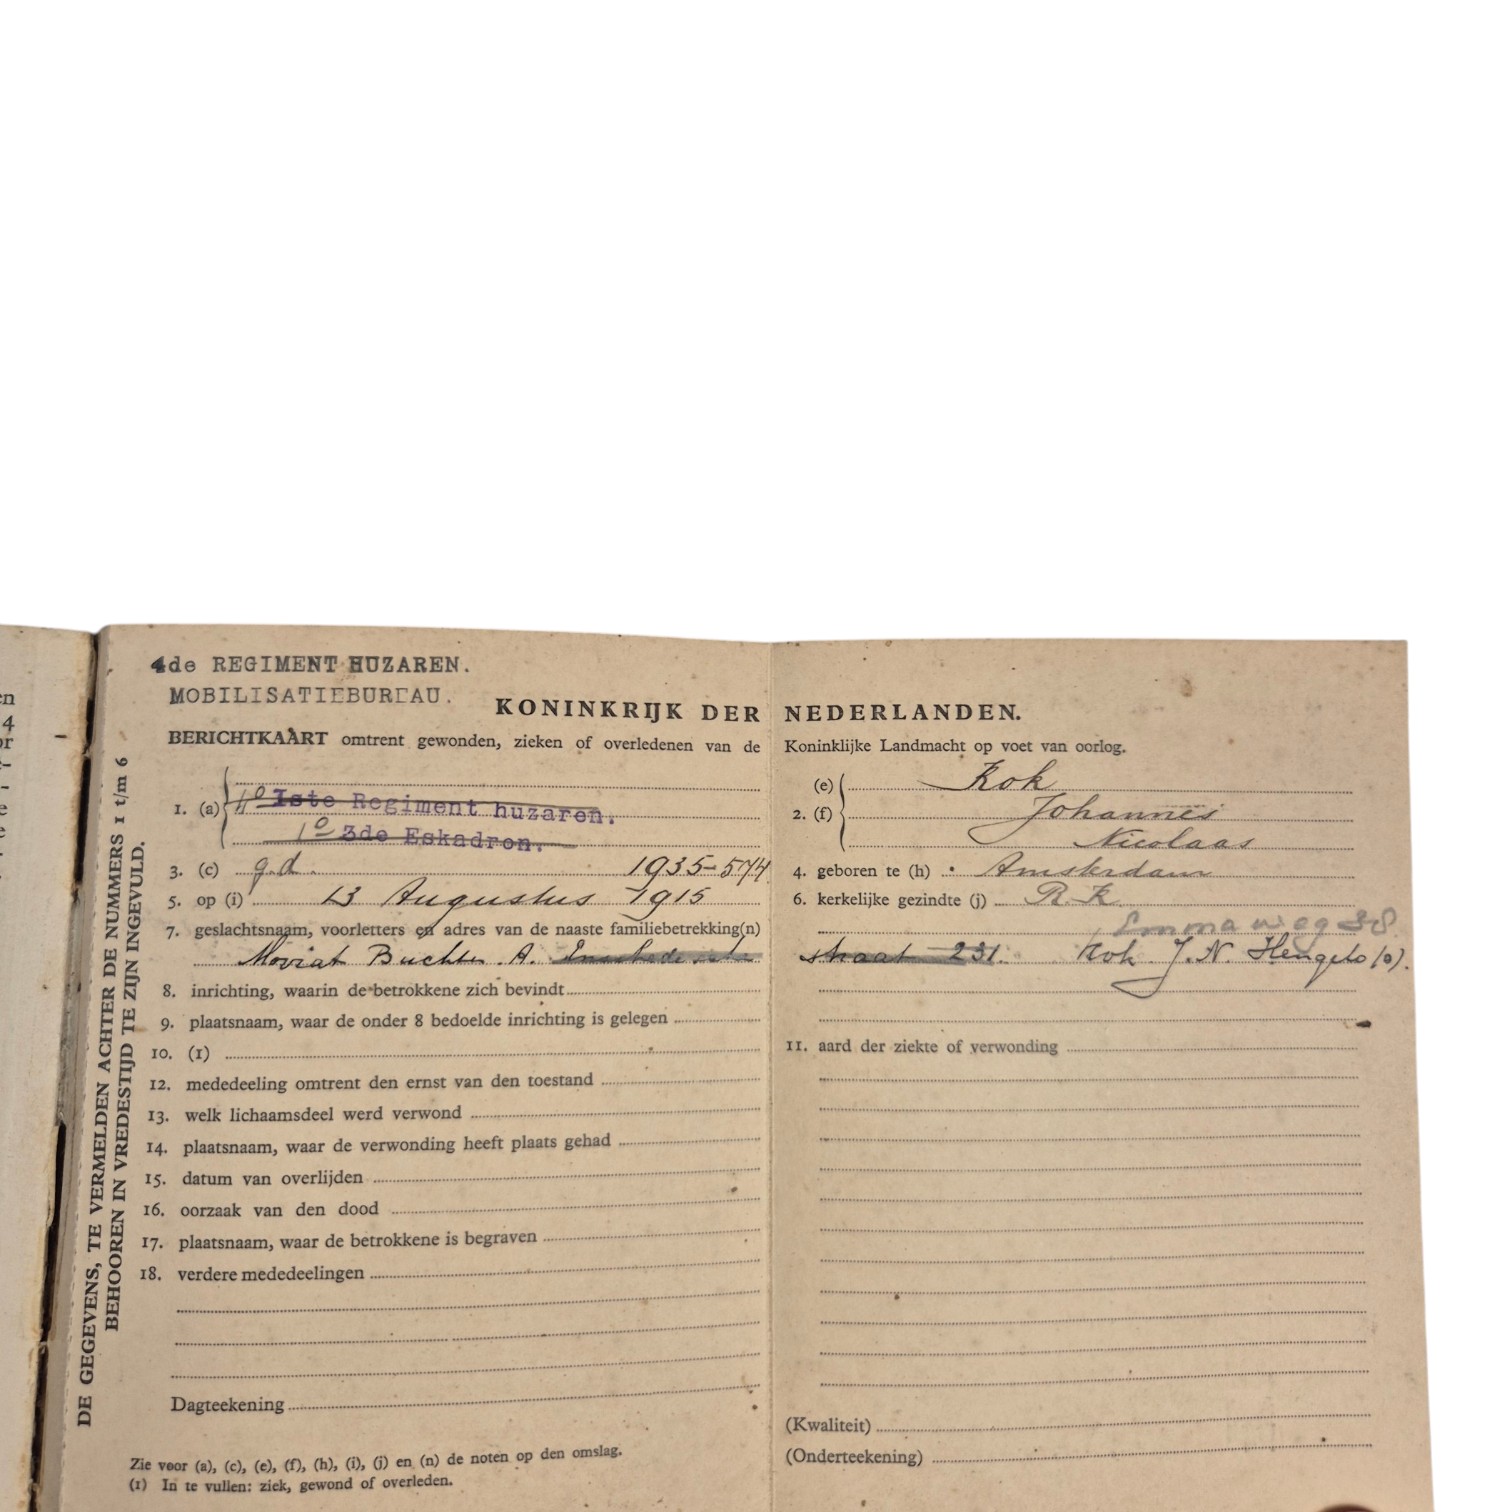 4de REGIMENT HUZAREN.
MOBILISATIEBUREAU.
KONINKRIJK DER NEDERLANDEN.
BERICHTKAART omtrent gewonden, zieken of overledenen van de Koninklijke Landmacht op voet van oorlog.
1. (a) 1ste Regiment huzaren.
3de Eskadron.
(e) Kok
2. (f) Johannes
Nicolaas
3. (c) g.d. 1935-574
4. geboren te (h) Amsterdam
5. op (i) 13 Augustus 1915
6. kerkelijke gezindte (j) R.K.
7. geslachtsnaam, voorletters en adres van de naaste familiebetrekking(n)
Emmaweg 38
A. straat 231. Kok J.N. Hengelo (o).
8. inrichting, waarin de betrokkene zich bevindt
9. plaatsnaam, waar de onder 8 bedoelde inrichting is gelegen
10. (1)
11. aard der ziekte of verwonding
12. mededeeling omtrent den ernst van den toestand
13. welk lichaamsdeel werd verwond
14. plaatsnaam, waar de verwonding heeft plaats gehad
15. datum van overlijden
16. oorzaak van den dood
17. plaatsnaam, waar de betrokkene is begraven
18. verdere mededeelingen
Dagteekening
(Kwaliteit)
(Onderteekening)
Zie voor (a), (c), (e), (f), (h), (i), (j) en (n) de noten op den omslag.
(1) In te vullen: ziek, gewond of overleden.
DE GEGEVENS, TE VERMELDEN ACHTER DE NUMMERS 1 t/m 6
BEHOOREN IN VREDESTIJD TE ZIJN INGEVULD.